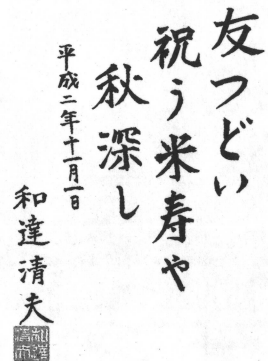 友つどい
祝う米寿や
秋深し
平成二年十一月一日
和達清夫